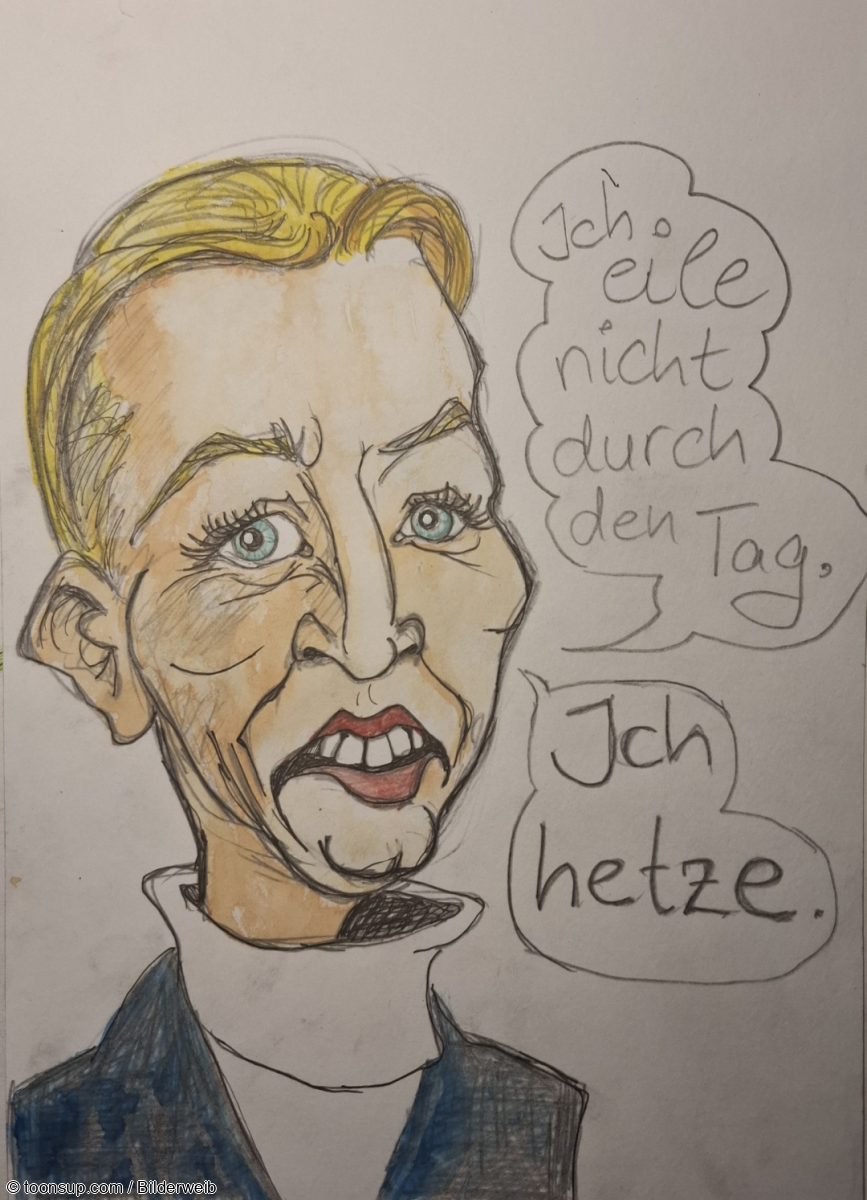 Ich
eile
nicht
durch
den Tag,
Ich
hetze.
© toonsup.com / Bilderweib